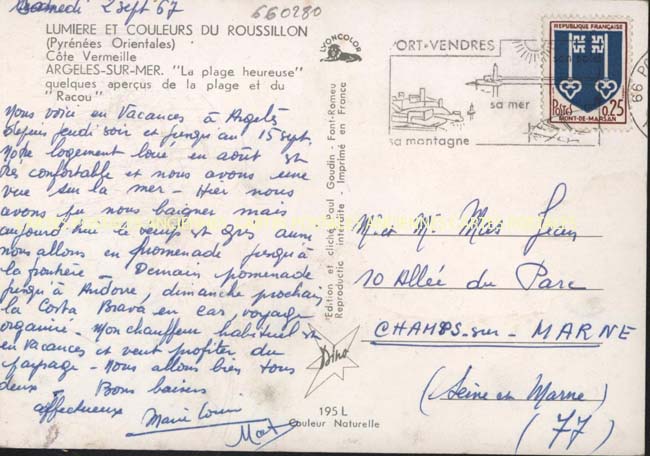 Samedi 2 sept 67
660280
LUMIERE ET COULEURS DU ROUSSILLON
(Pyrénées Orientales)
Côte Vermeille
ARGELES-SUR-MER. "La plage heureuse"
quelques aperçus de la plage et du
"Racou"
Nous voici en Vacances à Argelès
depuis jeudi soir et jusqu'au 15 sept.
Notre logement loué en août est
très confortable et nous avons une
vue sur la mer - Hier nous
avons pu nous baigner mais
aujourd'hui le temps est gris aussi
nous allons en promenade jusqu'à
la frontière - Demain promenade
jusqu'à Andorre, dimanche prochain
la Costa Brava en car, voyage
organisé - Mon chauffeur habituel est
en Vacances et veut profiter du
paysage - Nous allons bien tous
deux - Bons baisers
affectueux Marie Louise
LYONCOLOR
Edition et cliché Paul Goudin - Font-Romeu
Reproduction interdite - Imprimé en France
Dino
195 L
Couleur Naturelle
PORT-VENDRES
son soleil
sa mer
sa montagne
REPUBLIQUE FRANÇAISE
Postes 0,25
MONT-DE-MARSAN
66 PO
Jean
10 Allée du Parc
CHAMPS-sur-MARNE
(Seine et Marne)
(77)